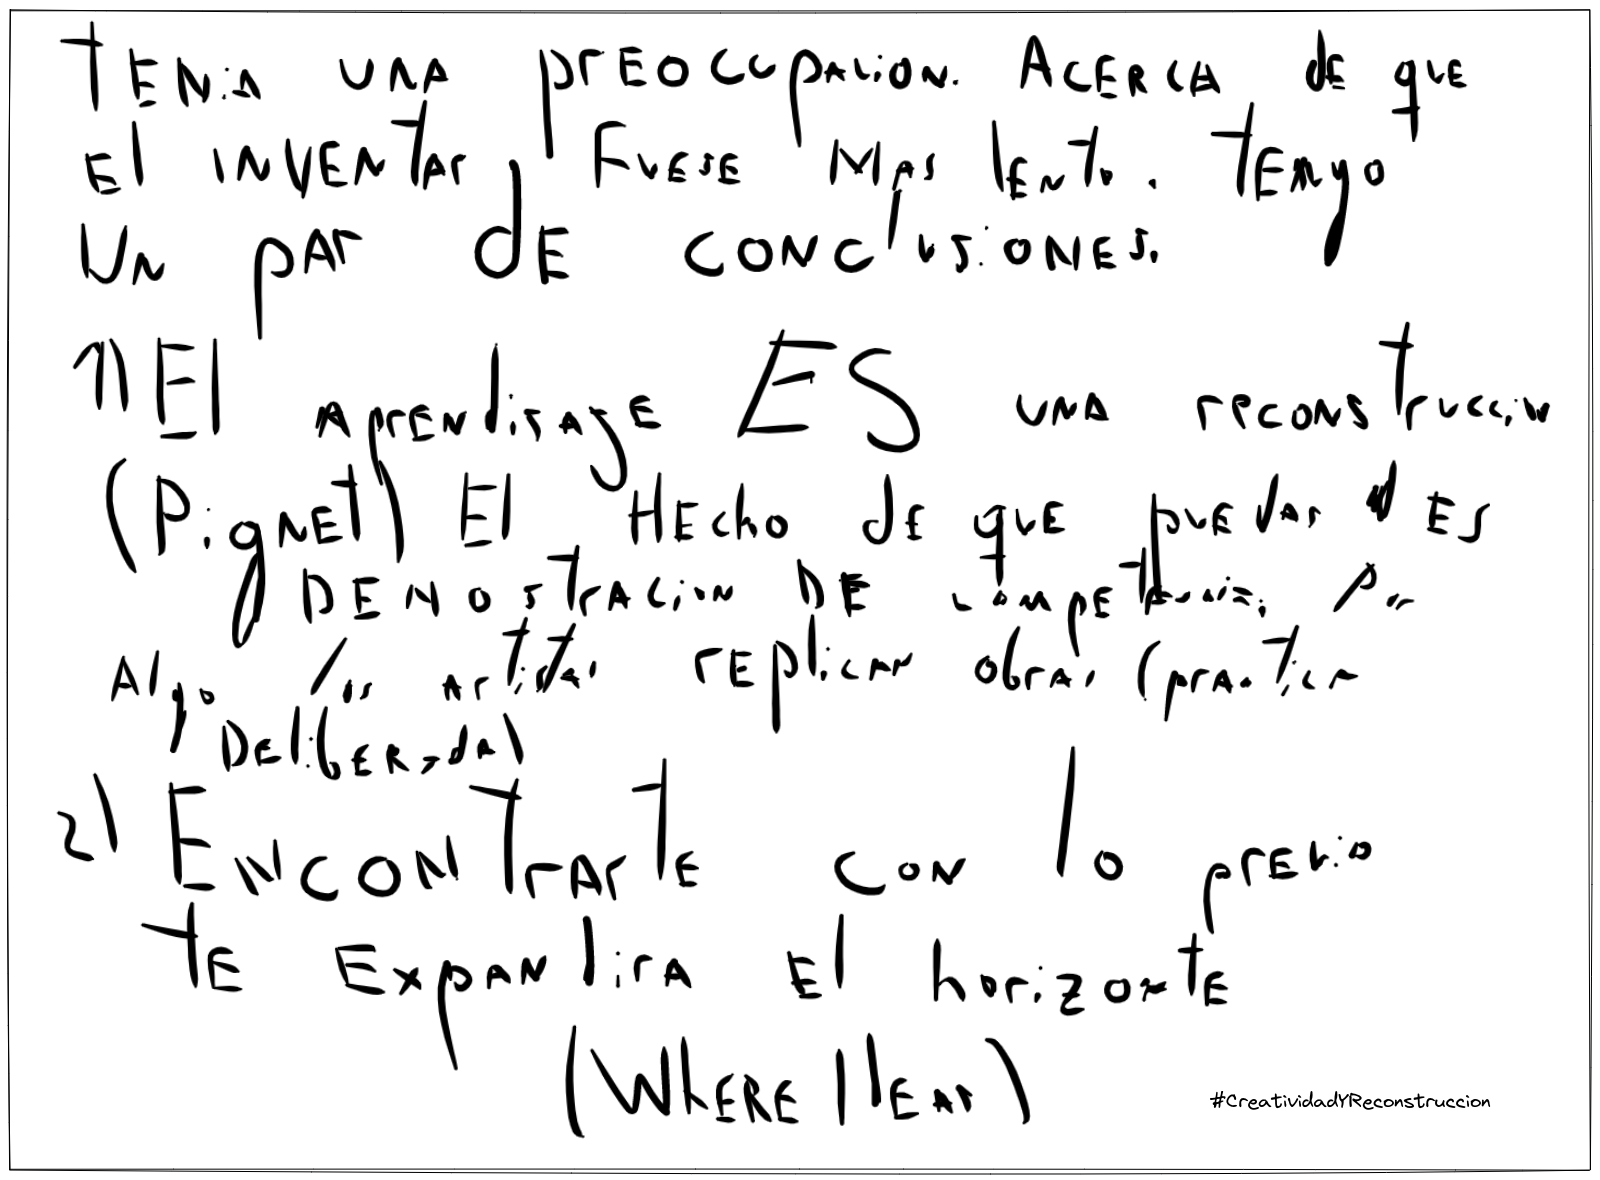 TENia UNA preocupacion. Acerca de que
El inventar Fuese Mas lento. tengo
Un par de conclusiones.
1) El Aprendisaje ES una reconstruccion
(Piagnet) El Hecho de que puedas ES
DEMOSTRACION DE competencia. Por
Algo los artistas replican obras (practica
Deliberada)
2) Encontrarte con lo previo
te Expandira el horizonte
(Where Ideas)
#CreatividadYReconstruccion